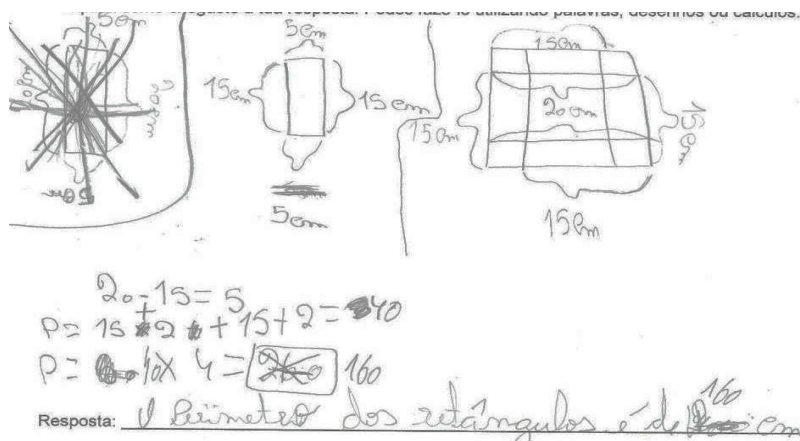 utilizando palavras, desenhos ou cálculos.
5cm
5cm 15cm
15cm 15cm 20cm
15cm 15cm
5cm
15cm
20-15=5
P= 15+2+15+2=40
P= 40x 4= 160
Resposta: O Perímetro dos retângulos é de 160 cm